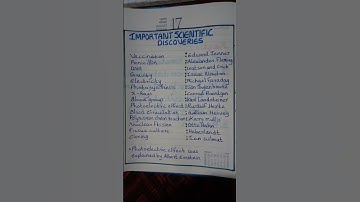 17
IMPORTANT SCIENTIFIC
DISCOVERIES
Vaccination : Edward Jenner
Penicillin : Alexander Fleming
DNA : Watson and Crick
Gravity : Isaac Newton
Electricity : Michael Faraday
Photosynthesis : Jan Ingenhousz
X-Rays : Conrad Roentgen
Blood group : Karl Landsteiner
Photoelectric effect :
Blood circulation : William Harvey
Polymerase chain reaction : Kary mullis
Nuclear Fission : Otto Hahn
: Haberlandt
Cloning : Ian wilmut
* Photoelectric effect was
explained by Albert Einstein